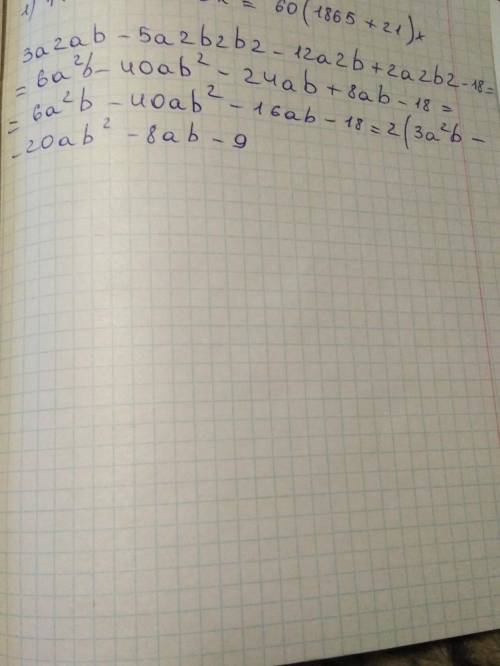 1) = 60(1865+21)x
3a2ab-5a2b2b2-12a2b+2a2b2-18=
=6a²b-40ab²-24ab+8ab-18=
=6a²b-40ab²-16ab-18=2(3a²b-
-20ab²-8ab-9